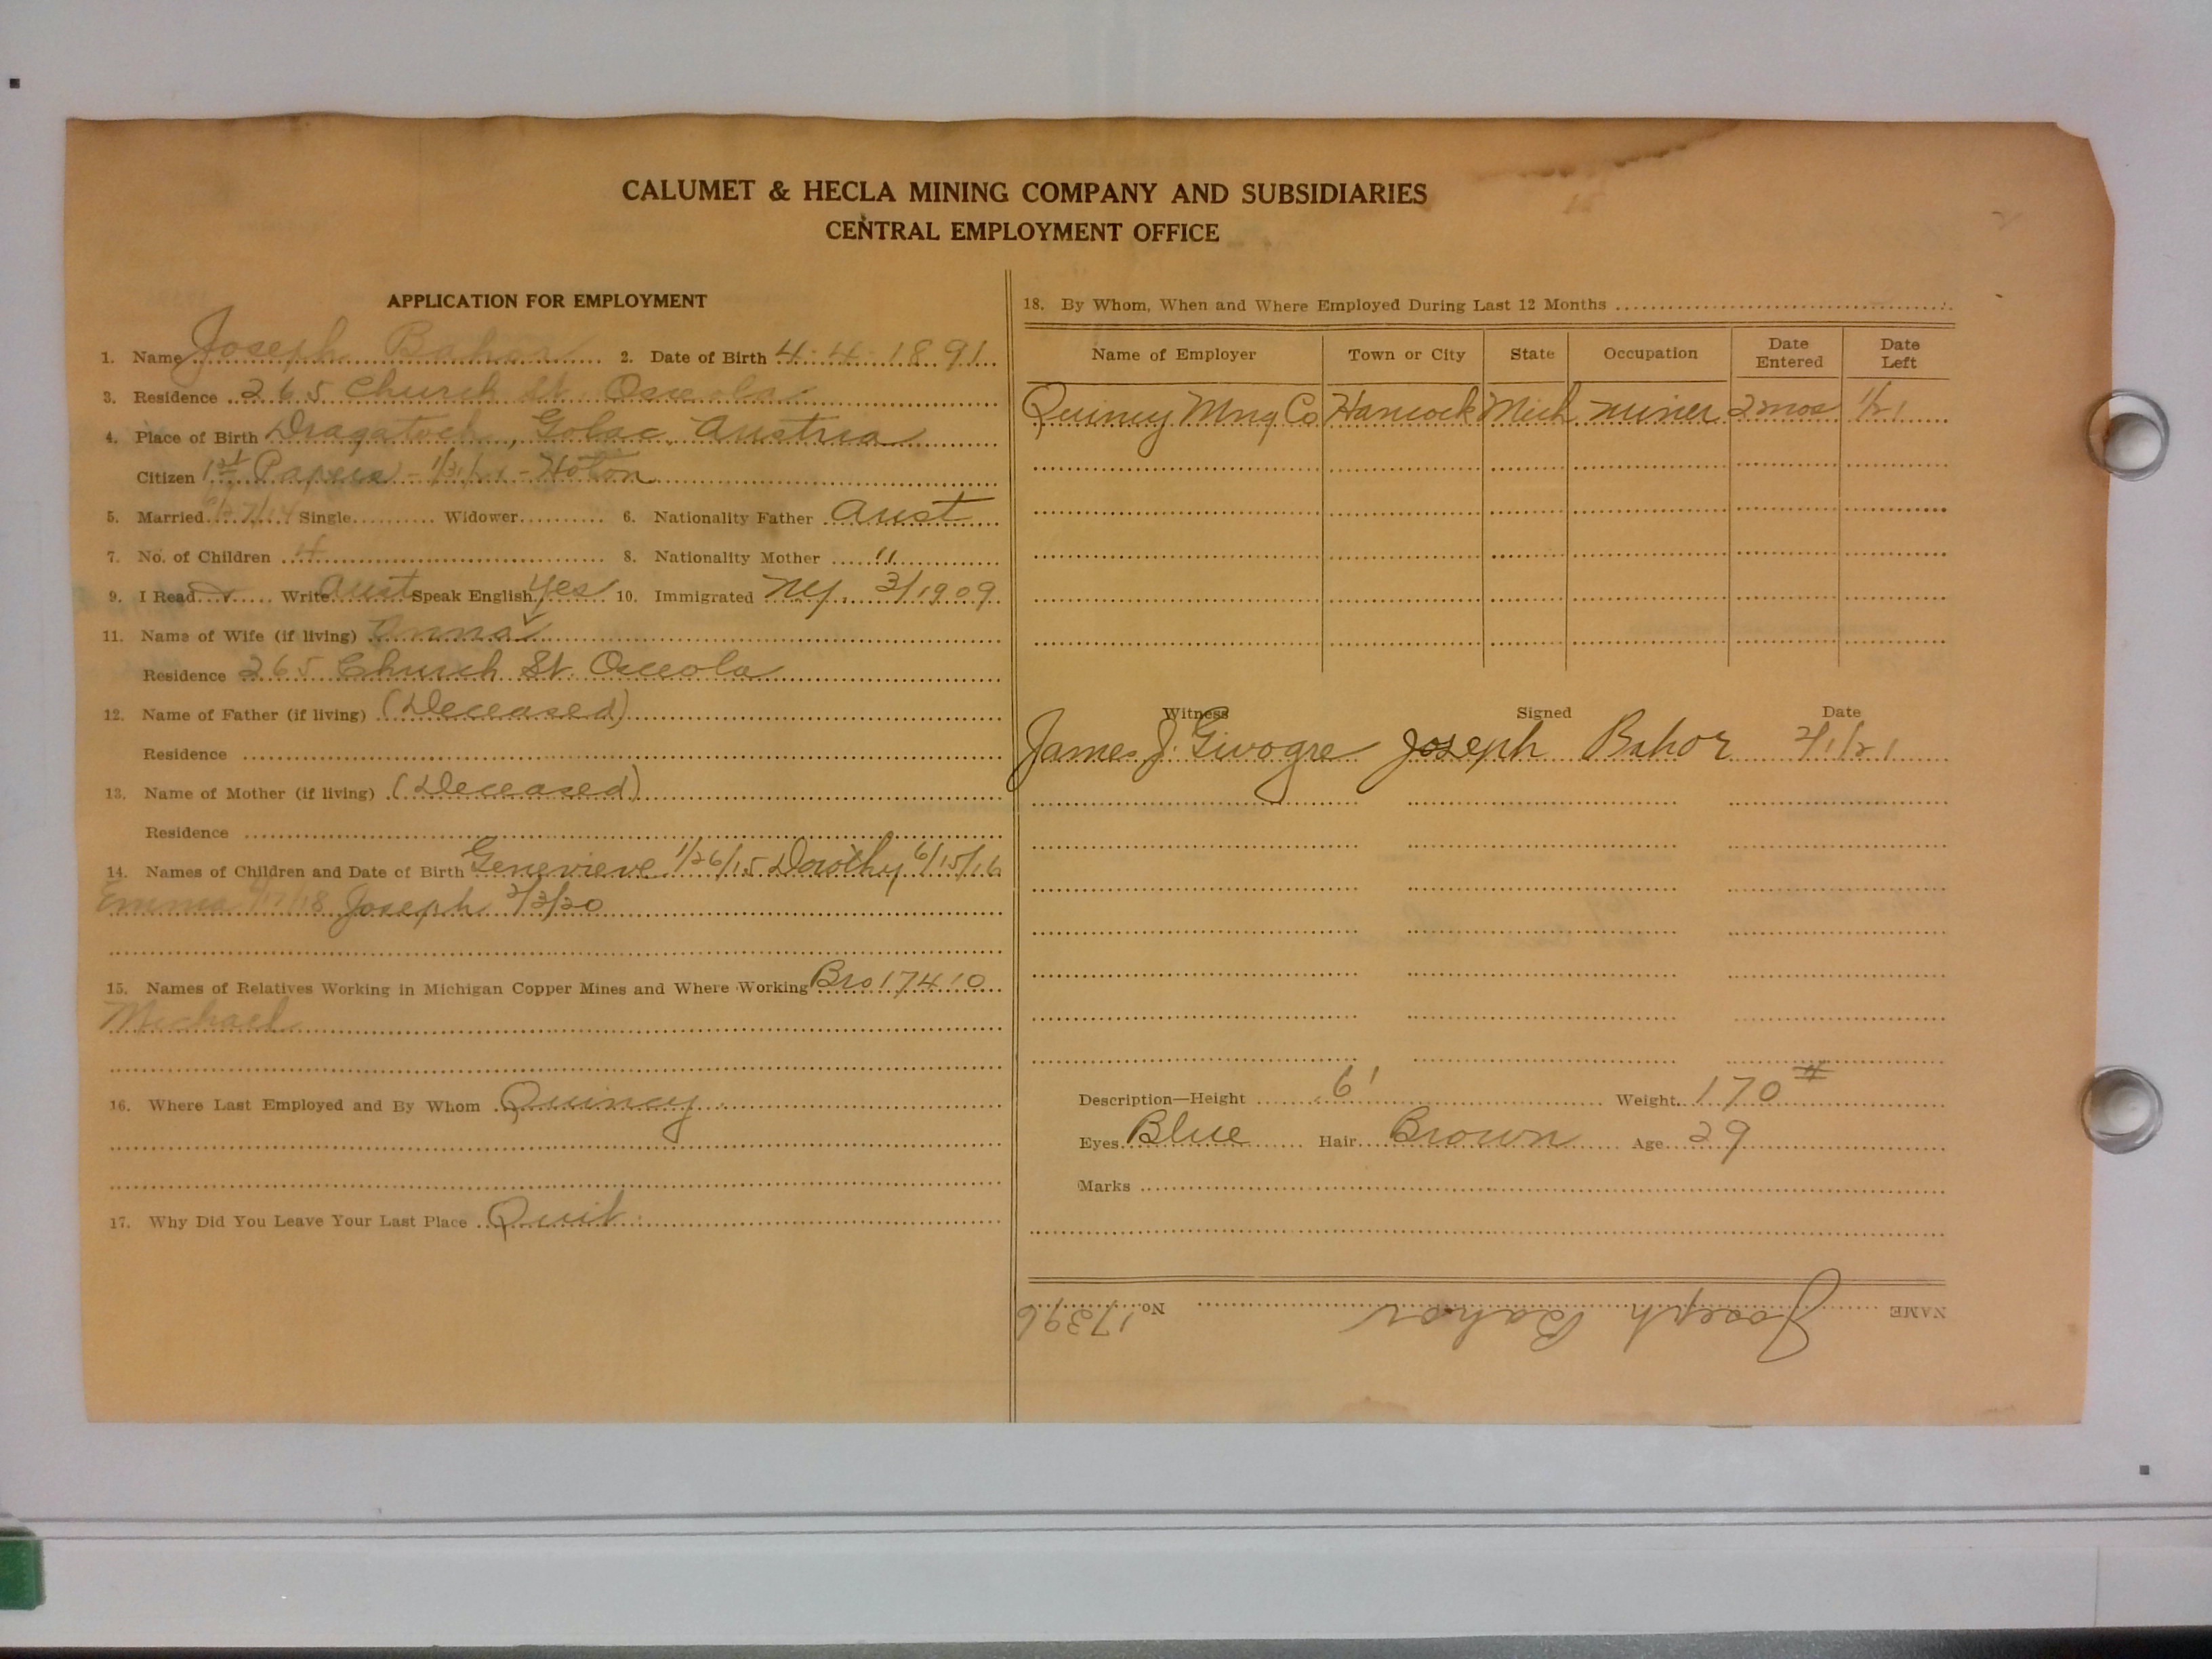 CALUMET & HECLA MINING COMPANY AND SUBSIDIARIES
CENTRAL EMPLOYMENT OFFICE
APPLICATION FOR EMPLOYMENT
1. Name Joseph 2. Date of Birth 4-4-1891
3. Residence 265 Church St. Osceola
4. Place of Birth Dragatoch, Golac, Austria
Citizen 1st Papers - Hoton
5. Married Single Widower 6. Nationality Father Aust
7. No. of Children 4 8. Nationality Mother "
9. I Read ✓ Write Aust Speak English Yes 10. Immigrated NY. 3/1909
11. Name of Wife (if living) Anna
Residence 265 Church St. Osceola
12. Name of Father (if living) (Deceased)
Residence
13. Name of Mother (if living) (Deceased)
Residence
14. Names of Children and Date of Birth Genevieve 1/26/15 Dorothy 6/15/16
Emma Joseph 2/3/20
15. Names of Relatives Working in Michigan Copper Mines and Where Working Bro 17410
Michael
16. Where Last Employed and By Whom Quincy
17. Why Did You Leave Your Last Place Quit
18. By Whom, When and Where Employed During Last 12 Months
Name of Employer Town or City State Occupation Date Entered Date Left
Quincy Mng Co Hancock Mich miner 2 mos 1/21
Witness Signed Date
James J. Givogre Joseph Bahor 2/1/21
Description—Height 6' Weight 170 #
Eyes Blue Hair Brown Age 29
Marks
NAME Joseph Bahor No. 17396